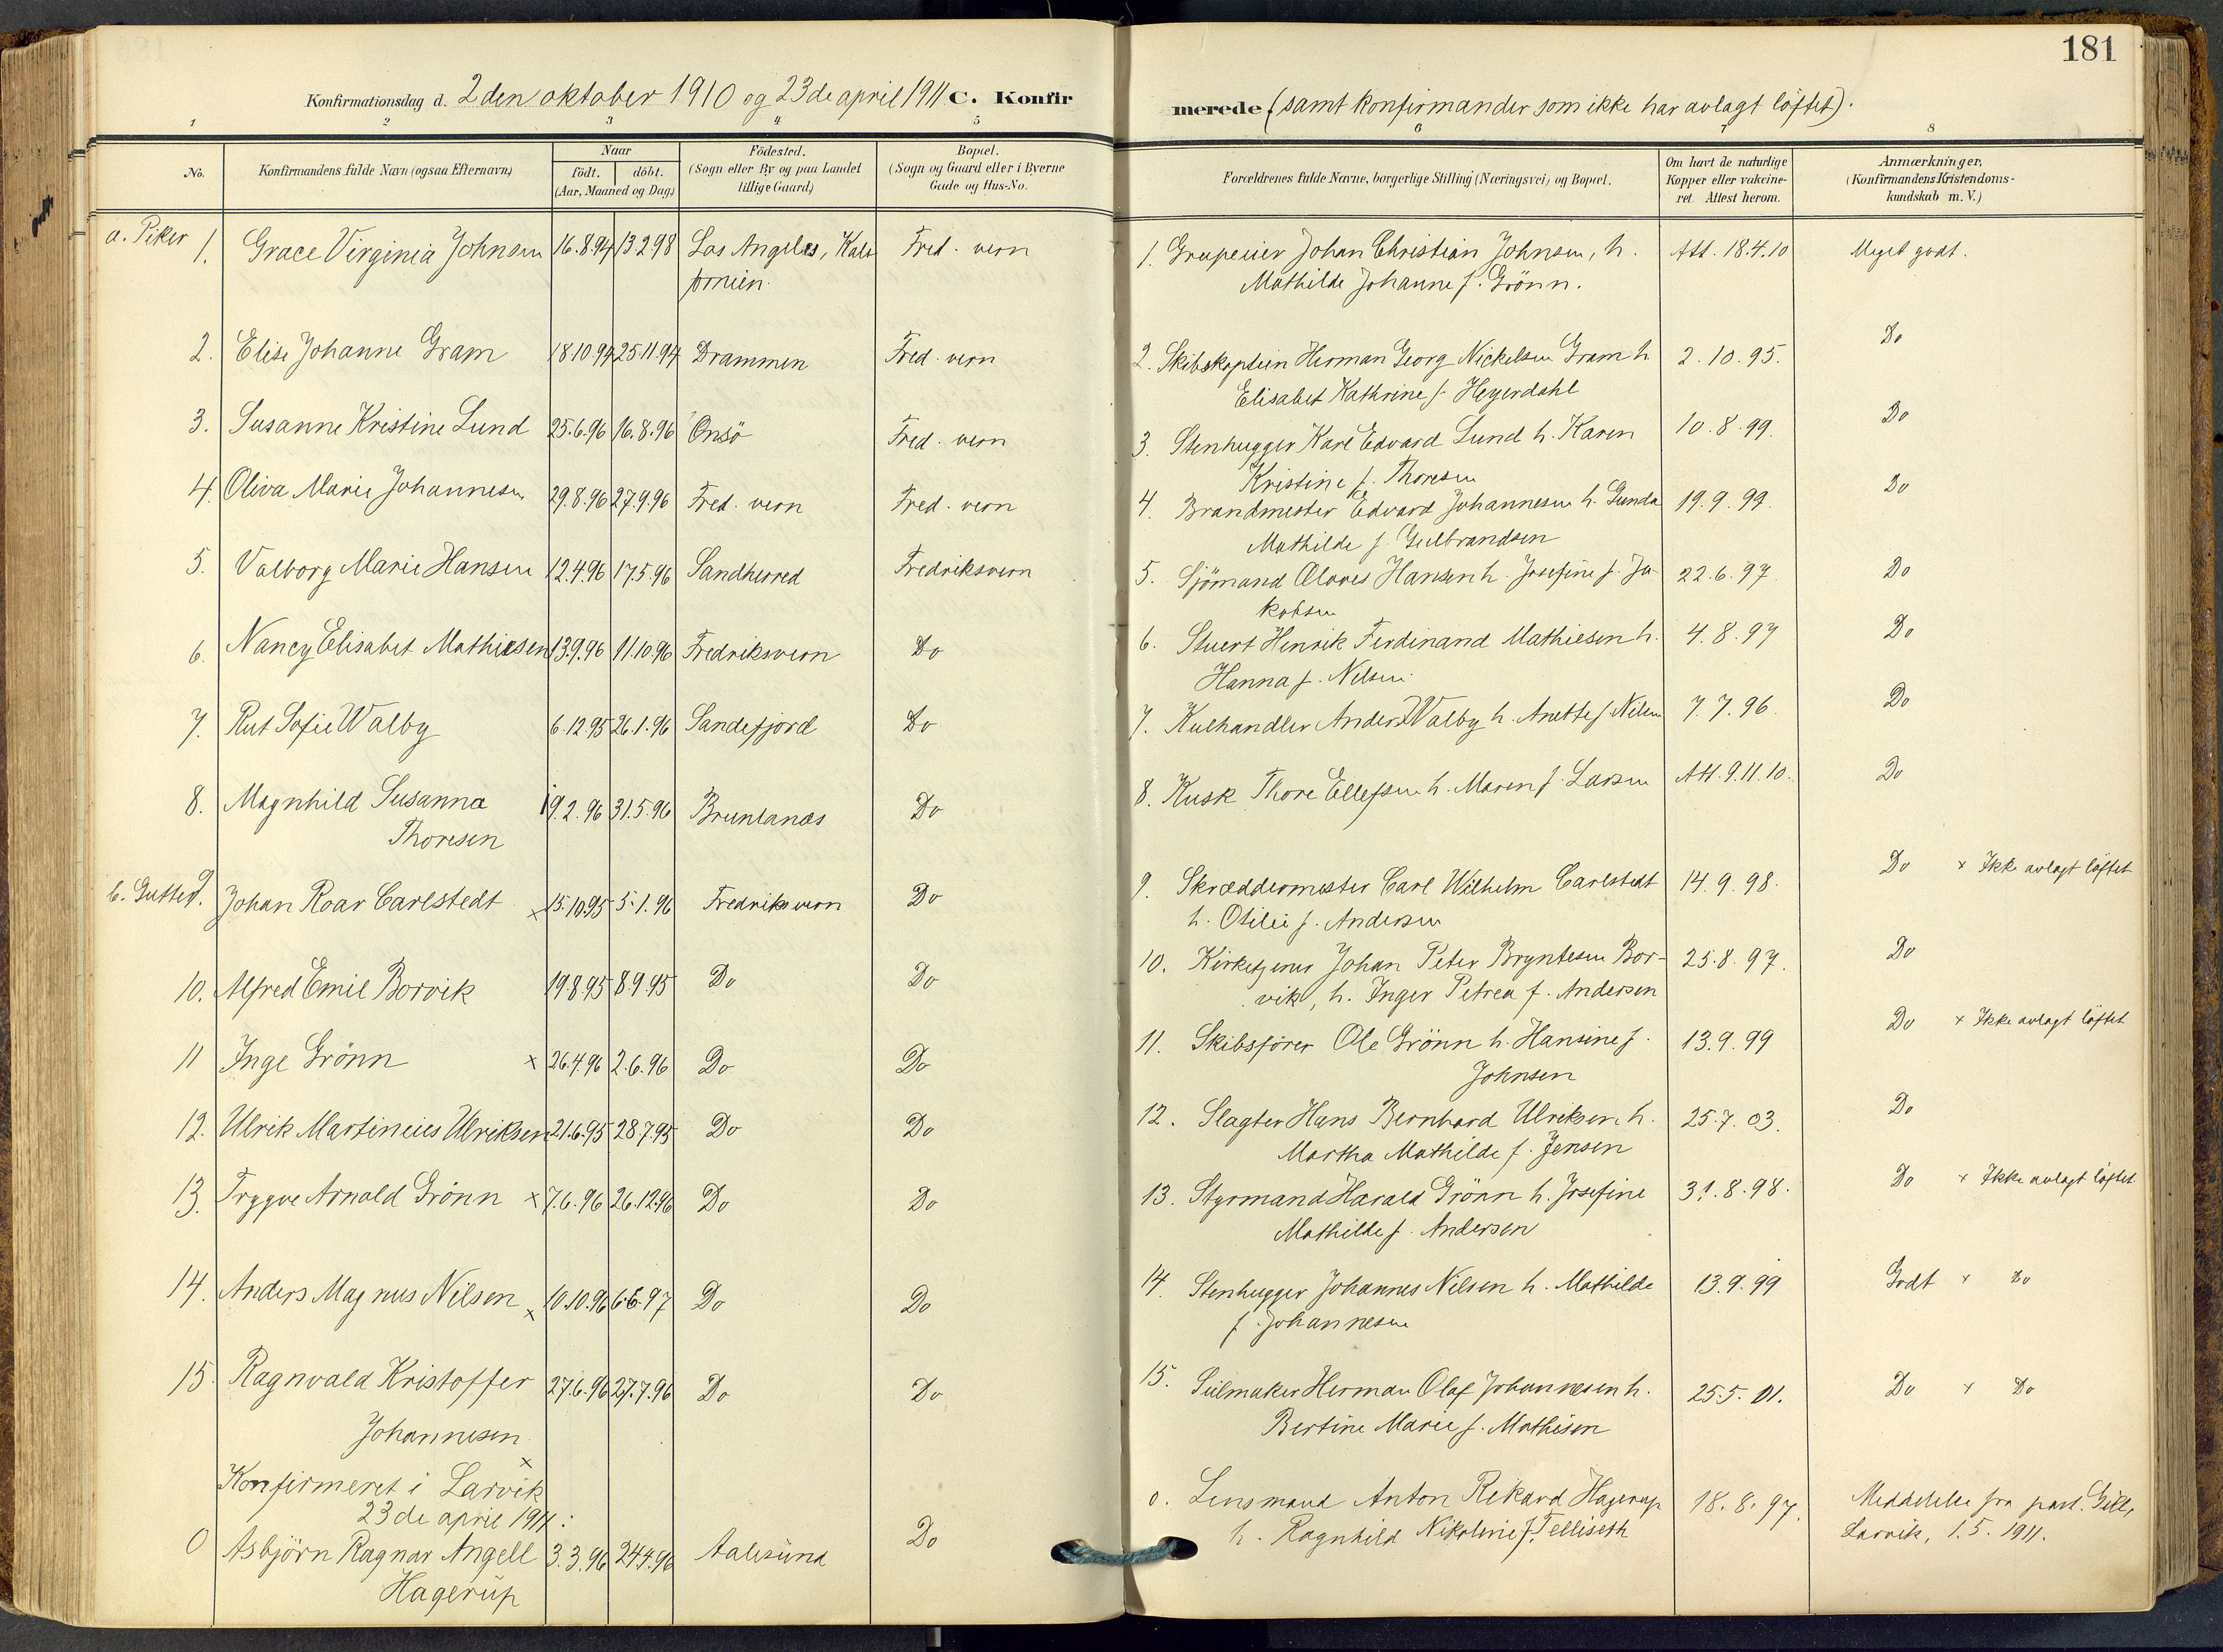 181
Konfirmationsdag d. 2den oktober 1910 og 23de april 1911 C. Konfir
merede (samt konfirmander som ikke har avlagt löftet).
1 2 3 4 5
6 7 8
No.
Konfirmandens fulde Navn (ogsaa Efternavn)
Naar
födt. döbt.
(Aar, Maaned og Dag)
Födested.
(Sogn eller By og paa Landet
tillige Gaard)
Bopæl.
(Sogn og Gaard eller i Byerne
Gade og Hus-No.
Forældrenes fulde Navne, borgerlige Stilling (Næringsvei) og Bopæl.
Om havt de naturlige
Kopper eller vakcine-
ret. Attest herom.
Anmærkninger.
(Konfirmandens Kristendoms-
kundskab m. V.)
a. Piker 1. Grace Virginia Johnsen 16.8.94 13.2.98 Los Angeles, Kali Fred. vern
fornien.
2. Elise Johanne Gram 18.10.94 25.11.94 Drammen Fred. vern
3. Susanne Kristine Lund 25.6.96 16.8.96 Onsö Fred. vern
4. Oliva Marie Johannesen 29.8.96 27.9.96 Fred. vern Fred. vern
5. Valborg Marie Hansen 12.4.96 17.5.96 Sandherred Fredriksvern
6. Nancy Elisabet Mathiesen 13.9.96 11.10.96 Fredriksvern Do
7. Rut Sofie Walby 6.12.95 26.1.96 Sandefjord Do
8. Magnhild Susanna 19.2.96 31.5.96 Brunlanæs Do
Thoresen
b. Gutter 9. Johan Roar Carlstedt x 15.10.95 5.1.96 Fredriksvern Do
10. Alfred Emil Borvik 19.8.95 8.9.95 Do Do
11 Inge Grönn x 26.4.96 2.6.96 Do Do
12. Ulrik Martinius Ulriksen 21.6.95 28.7.95 Do Do
13. Trygve Arnold Grönn x 7.6.96 26.12.96 Do Do
14. Anders Magnus Nilsen x 10.10.96 6.6.97 Do Do
15. Ragnvald Kristoffer 27.6.96 27.7.96 Do Do
Johannesen x
Konfirmeret i Larvik
23de april 1911:
0 Asbjörn Ragnar Angell 3.3.96 24.4.96 Aalesund Do
Hagerup
1. Johan Christian Johnsen, h. Att. 18.4.10 Meget godt.
Mathilde Johanne f. Grönn.
2. Skibskaptein Herman Georg Nickelsen Gram h 2.10.95. Do
Elisabet Kathrine f. Heyerdahl
3. Stenhugger Karl Edvard Lund h. Karen 10.8.99. Do
Kristine f. Thoresen
4. Brandmester Edvard Johannesen h. Gunda 19.9.99. Do
Mathilde f. Gulbrandsen
5. Sjömand Hansen h. Josefine f. Ja- 22.6.97. Do
kobsen
6. Stuert Henrik Ferdinand Mathiesen h. 4.8.97 Do
Hanna f. Nilsen.
7. Kulhandler Anders Walby h. Anette f. Nilsen 7.7.96. Do
8. Kusk Thore Ellefsen h. Maren f. Larsen Att. 9.11.10. Do
9. Skræddermester Carl Wilhelm Carlstedt 14.9.98. Do x Ikke avlagt löftet
h. Otilie f. Andersen
10. Kirketjener Johan Peter Bryntesen Bor- 25.8.97. Do
vik, h. Inger Petrea f. Andersen
11. Skibsförer Ole Grönn h. Hansine f. 13.9.99 Do x Ikke avlagt löftet
Johnsen
12. Slagter Hans Bernhard Ulriksen h. 25.7.03. Do
Martha Mathilde f. Jensen
13. Styrmand Harald Grönn h. Josefine 31.8.98. Do x Ikke avlagt löftet
Mathilde f. Andersen
14. Stenhugger Johannes Nilsen h. Mathilde 13.9.99 Godt x Do
f. Johannesen
15. Seilmaker Herman Olaf Johannesen h. 25.5.01. Do x Do
Bertine Marie f. Mathisen
0. Lensmand Anton Rikard Hagerup 18.8.97. Meddelelse fra past. Gill,
h. Ragnhild Nikoline f. Telliseth Larvik, 1.5.1911.